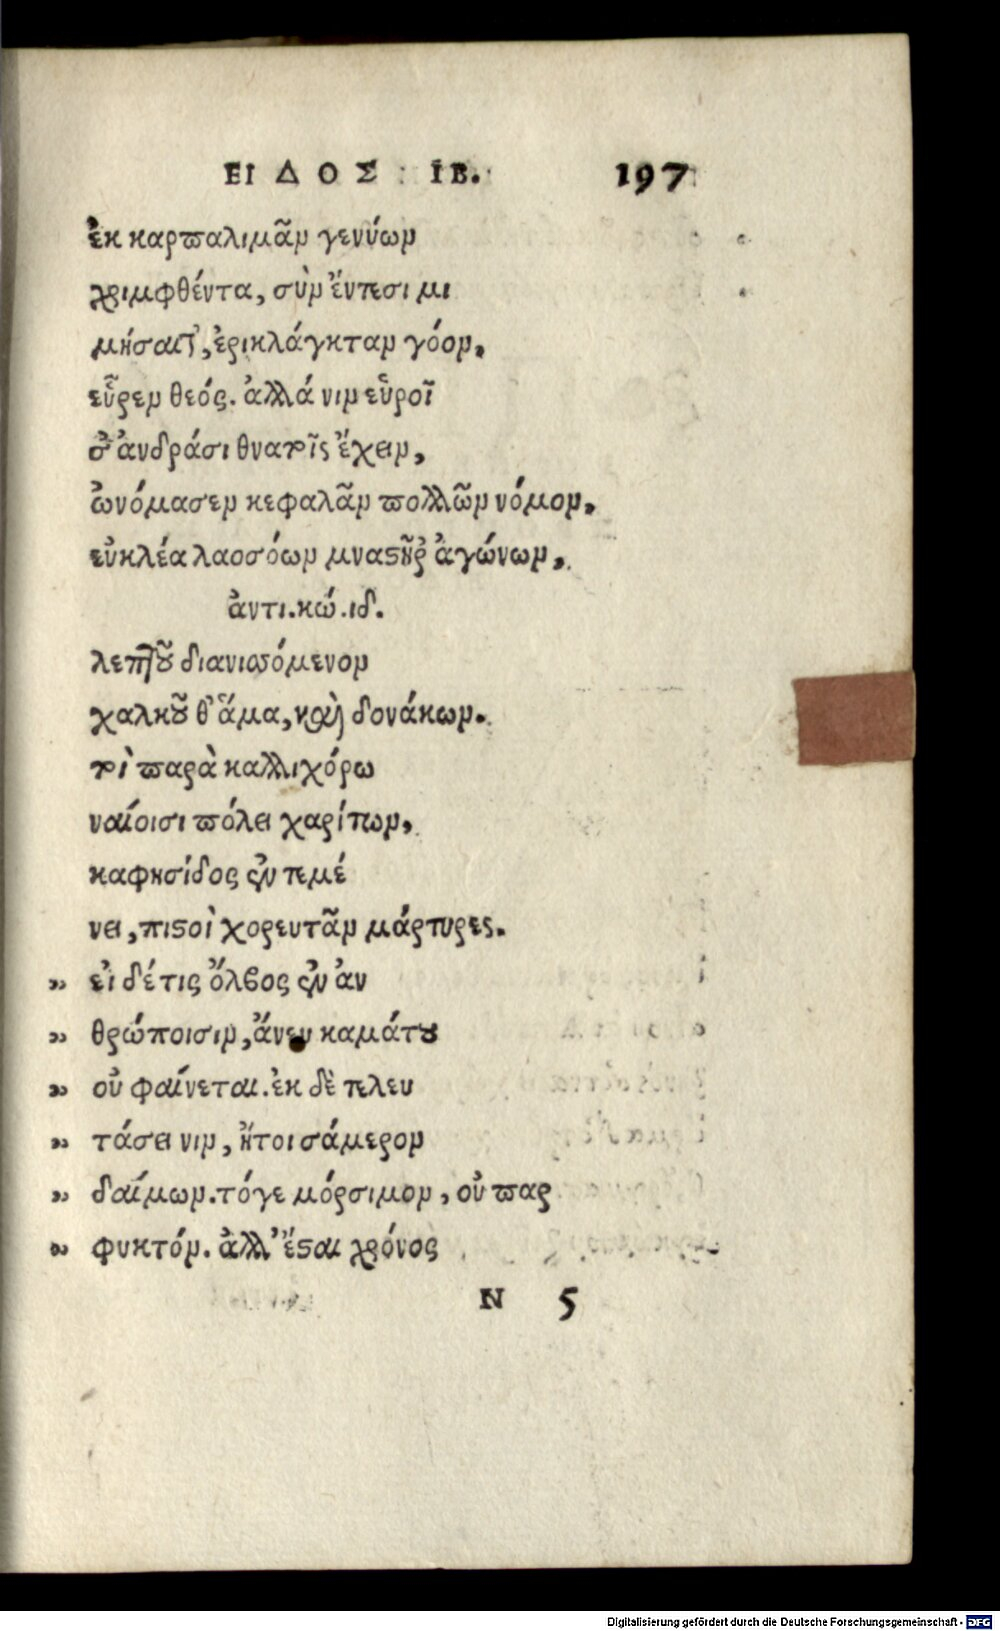 ΕΙΔΟΣ ΙΒ. 197
ἐκ καρπαλιμᾶν γενύων
χριμφθέντα, σὺν ἔντεσι μι
μήσαιτ', ἐρικλάγκταν γόον.
εὗρεν θεός. ἀλλά νιν εὑροῖ
σ' ἀνδράσι θνατοῖς ἔχειν,
ὠνόμασεν κεφαλᾶν πολλῶν νόμον.
εὐκλέα λαοσσόων μναστῆρ' ἀγώνων,
ἀντι.κώ.ιδ.
λεπτοῦ διανισόμενον
χαλκοῦ θ' ἅμα, καὶ δονάκων.
τοὶ παρὰ καλλιχόρῳ
ναίοισι πόλει χαρίτων,
καφησίδος ἐν τεμέ
νει, πιστοὶ χορευτᾶν μάρτυρες.
" εἰ δέ τις ὄλβος ἐν ἀν
" θρώποισιν, ἄνευ καμάτου
" οὐ φαίνεται. ἐκ δὲ τελευ
" τάσει νιν, ἤτοι σάμερον
" δαίμων. τό γε μόρσιμον, οὐ παρ
" φυκτόν. ἀλλ' ἔσται χρόνος
N 5
Digitalisierung gefördert durch die Deutsche Forschungsgemeinschaft - DFG